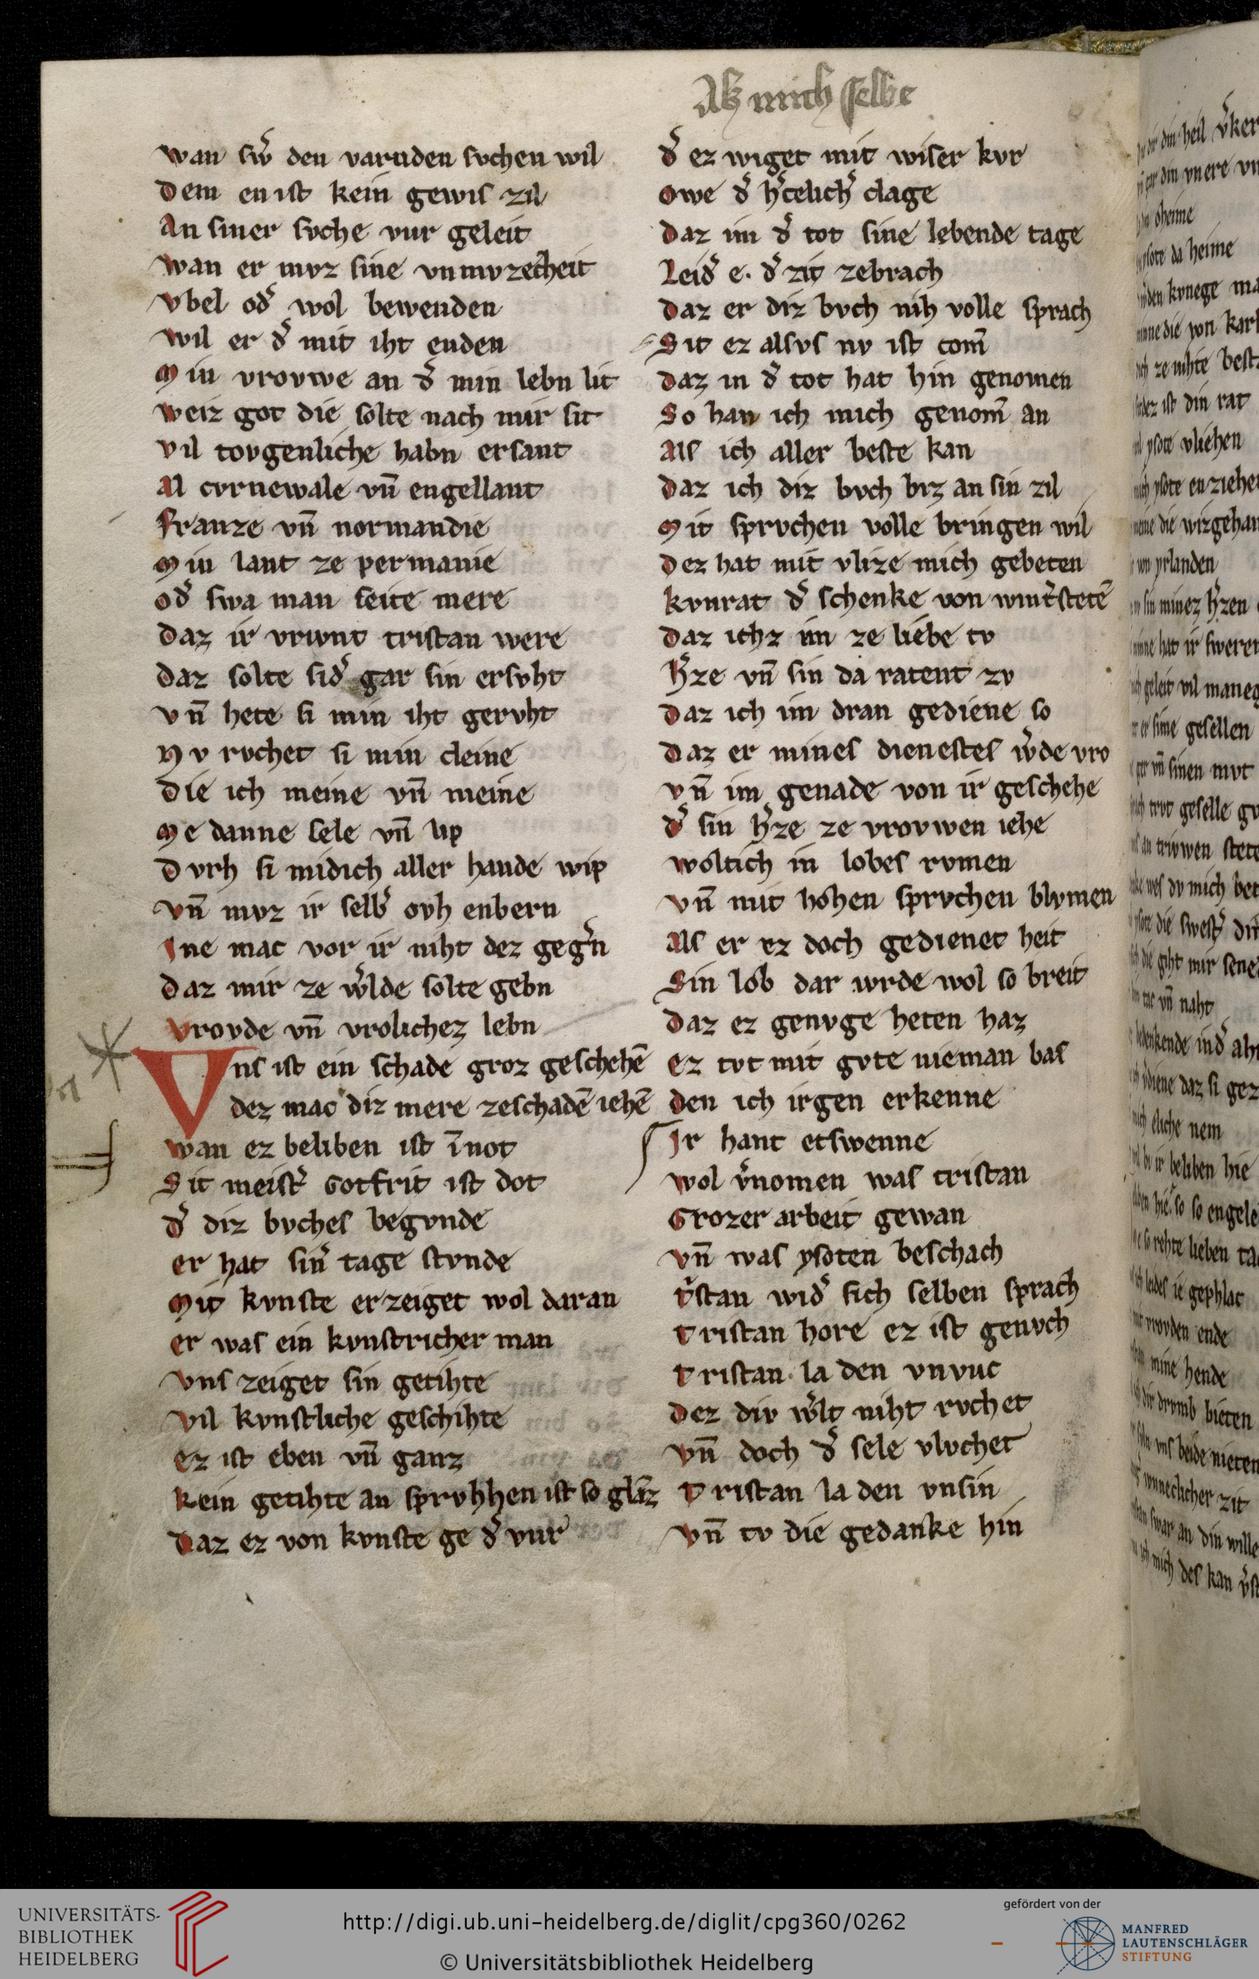 Alz mich selbe
wan sw̾ den varnden svchen wil
Dem en ist kein gewis zil
An siner svche vur geleit
wan er mvz sine vnmvzecheit
vbel od̾ wol bewenden
wil er d̾ mit iht enden
Min vrovwe an d̾ min lebn lit
weiz got die solte nach mir sit
vil tovgenliche habn ersant
Al cvrnewale vn̄ engellant
franze vn̄ normandie
Min lant ze permanie
od̾ swa man seite mere
Daz ir vriwnt tristan were
Daz solte sid̾ gar sin ersvht
vn̄ hete si min iht gervht
Nv rvchet si min cleine
Die ich meine vn̄ meine
Me danne sele vn̄ lip
Dvrh si midich aller hande wip
vn̄ mvz ir selb̾ ovh enbern
Ine mac vor ir niht dez geg̾n
Daz mir ze w̾lde solte gebn
vrovde vn̄ vrolichez lebn
Vns ist ein schade groz geschehē
dez mac diz mere zeschadē iehē
wan ez beliben ist īnot
Sit meist̾ Gotfrit ist dot
d̾ diz bvches begvnde
er hat sin̾ tage stvnde
Mit kvnste erzeiget wol daran
er was ein kvnstricher man
vns zeiget sin getihte
vil kvnstliche geschihte
ez ist eben vn̄ ganz
kein getihte an sprvhhen ist so glāz
Daz ez von kvnste ge d̾ vur
d̾ ez wiget mit wiser kvr
owe d̾ h̾celich̾ clage
Daz im d̾ tot sine lebende tage
Leid̾ e. d̾ zit zebrach
daz er diz bvch nih volle sprach
Sit ez alsvs nv ist com̄
daz in d̾ tot hat hin genomen
So han ich mich genom̄ an
Als ich aller beste kan
Daz ich diz bvch biz an sin zil
Mit sprvchen volle bringen wil
Dez hat mit vlize mich gebeten
kvnrat d̾ schenke von wint̾stetē
daz ichz im ze liebe tv
h̾ze vn̄ sin da ratent zv
Daz ich im dran gediene so
Daz er mines dienestes w̾de vro
vn̄ im genade von ir geschehe
d̾ sin h̾ze ze vrovwen iehe
woltich in lobes rvmen
vn̄ mit hohen sprvchen blvmen
als er ez doch gedienet heit
Sin lob dar wrde wol so breit
Daz ez genvge heten haz
ez tvt mit gvte nieman bas
den ich irgen erkenne
Ir hant etswenne
wol v̾nomen was tristan
Grozer arbeit gewan
vn̄ was ysoten beschach
t̾stan wid̾ sich selben sprach
Tristan hore ez ist genvch
Tristan la den vnvuc
Dez div w̾lt niht rvchet
vn̄ doch d̾ sele vlvchet
Tristan la den vnsin
vn̄ tv die gedanke hin
UNIVERSITÄTS-
BIBLIOTHEK
HEIDELBERG
http://digi.ub.uni-heidelberg.de/diglit/cpg360/0262
© Universitätsbibliothek Heidelberg
gefördert von der
MANFRED
LAUTENSCHLÄGER
STIFTUNG